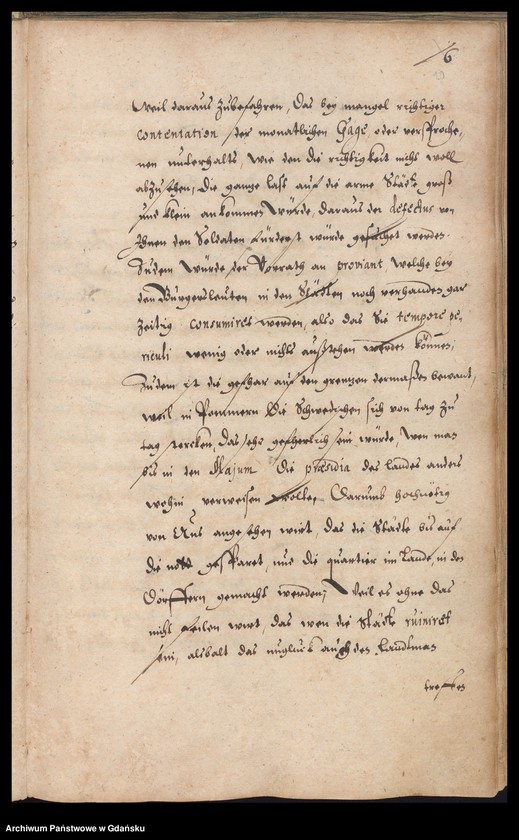 6
Weil daraus zubefahren, das bey mangel richtiger
contentation der monatlichen Gage oder versproche,
nen unterhalts, wie den die richtigkeit nicht woll
abzusehen, die gantze last auf die arme Städte groß
und klein ankommen würde, daraus der defectus von
Ihnen den Soldaten fürderst würde gesuchet werden.
Zudem würde der Vorrath an proviant, welche bey
den Bürgersleuten in den Städten noch verhanden gar
zeitig consumiret werden, also das Sie tempore pe,
riculi wenig oder nichts außstehen werden können,
Zudem ist die gefhar auf den grentzen dermaßen bewant,
weil in Pommern die Schwedischen sich von tag zu
tag stercken, das sehr gefherlich sein würde, wen man
bis in den Majum die præsidia des landes anders
wohin verweisen wolte, Darumb hochnötig
von Uns angesehen wirt, das die Städte bis auf
die nott gesparet, und die quartier im Lande, in den
Dörffern gemacht werden; Weil es ohne das
nicht feilen wirt, das wen die Städte ruiniret
sein, alsbalt das unglück auch den Landtman
treffen
Archiwum Państwowe w Gdańsku